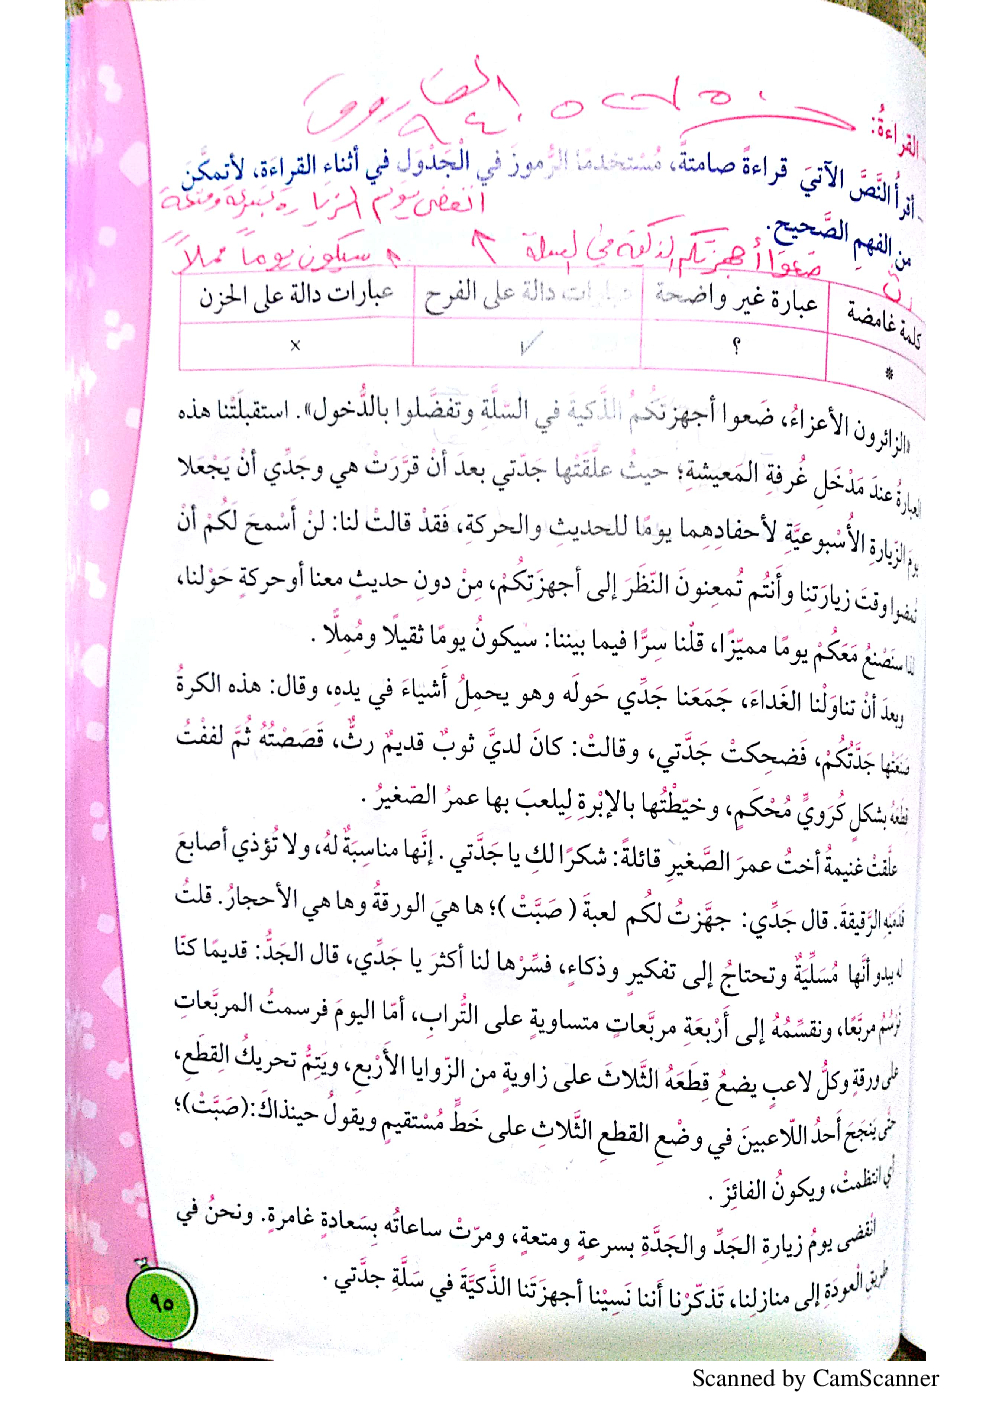 القراءةُ:
- أقرأُ النَّصَّ الآتيَ قراءةً صامتةً، مُسْتخدمًا الرُّموزَ في الْجَدْوَل في أثناء القراءة، لأتمكَّنَ
انقضى يوم الزيارة بسرعة ومتعة
من الفهمِ الصَّحيح.
ضعوا أجهزتكم الذكية في السلة
سيكون يوماً مملاً
كلمة غامضة
عبارة غير واضحة
عبارات دالة على الفرح
عبارات دالة على الحزن
*
؟
✓
×
«الزائرون الأعزاءُ، ضَعوا أجهزتَكُمُ الذَّكيةَ في السَّلَّةِ وتفضَّلوا بالدُّخول». استقبلَتْنا هذه
العبارةُ عندَ مَدْخَلِ غُرفةِ المَعيشةِ؛ حيثُ علَّقَتْها جَدَّتي بعدَ أنْ قرَّرَتْ هي وجَدِّي أنْ يَجْعَلا
يومَ الزّيارةِ الأُسْبوعيَّةِ لأحفادِهِما يومًا للحديثِ والحركةِ، فَقَدْ قالتْ لنا: لنْ أسْمحَ لَكُمْ أنْ
تُمضوا وقتَ زيارَتِنا وأنتُم تُمعِنونَ النَّظَرَ إلى أجهزَتِكُمْ، مِنْ دونِ حديثٍ معنا أوحركةٍ حَوْلنا،
لذا سنَصْنعُ مَعَكُمْ يومًا مميّزًا، قلْنا سِرًّا فيما بيننا: سيكونُ يومًا ثقيلًا ومُملًّا .
وبعدَ أنْ تناوَلْنا الغَداءَ، جَمَعَنا جَدِّي حَولَه وهو يحملُ أشياءَ في يدِهِ، وقال: هذه الكرةُ
صَنَعَتْها جَدَّتُكُمْ، فَضحِكتْ جَدَّتي، وقالتْ: كانَ لديَّ ثوبٌ قديمٌ رثٌّ، قَصَصْتُهُ ثُمَّ لففْتُ
قطعَهُ بشكلٍ كُرَويٍّ مُحْكَمٍ، وخيّطْتُها بالإبْرةِ لِيلعبَ بها عمرُ الصّغيرُ .
علَّقتْ غنيمةُ أختُ عمرَ الصَّغيرِ قائلةً: شكرًا لكِ يا جَدَّتي . إنَّها مناسبَةٌ لهُ، ولا تُؤذي أصابعَ
قدميْهِ الرَّقيقةَ. قال جَدِّي: جهَّزتُ لكُم لعبةَ ( صَبَّتْ )؛ ها هيَ الورقةُ وها هي الأحجارُ. قلتُ
له يبدو أنَّها مُسَلِّيَةٌ وتحتاجُ إلى تفكيرٍ وذكاءٍ، فسِّرْها لنا أكثرَ يا جَدِّي، قال الجَدُّ: قديمًا كنّا
نَرْسُمُ مربَّعًا، ونقسِّمُهُ إلى أَرْبعةِ مربَّعاتٍ متساويةٍ على التُّرابِ، أمّا اليومَ فرسمتُ المربَّعاتِ
على ورقةٍ وكلُّ لاعبٍ يضعُ قِطَعَهُ الثَّلاثَ على زاويةٍ من الزّوايا الأَرْبعِ، ويَتِمُّ تحريكُ القِطَعِ،
حتّى يَنجَحَ أحدُ اللّاعبينَ في وضْعِ القطعِ الثَّلاثِ على خَطٍّ مُسْتقيمٍ ويقولُ حينذاكَ:(صَبَّتْ)؛
أي انتظمتْ، ويكونُ الفائِزَ .
انْقضى يومُ زيارةِ الجَدِّ والجَدَّةِ بسرعةٍ ومتعةٍ، ومرّتْ ساعاتُه بِسَعادةٍ غامرةٍ. ونحنُ في
طريقِ الْعودَةِ إلى منازلِنا، تَذكّرْنا أننا نَسِيْنا أجهزَتَنا الذَّكيَّةَ في سَلَّةِ جدَّتي .
٩٥
Scanned by CamScanner